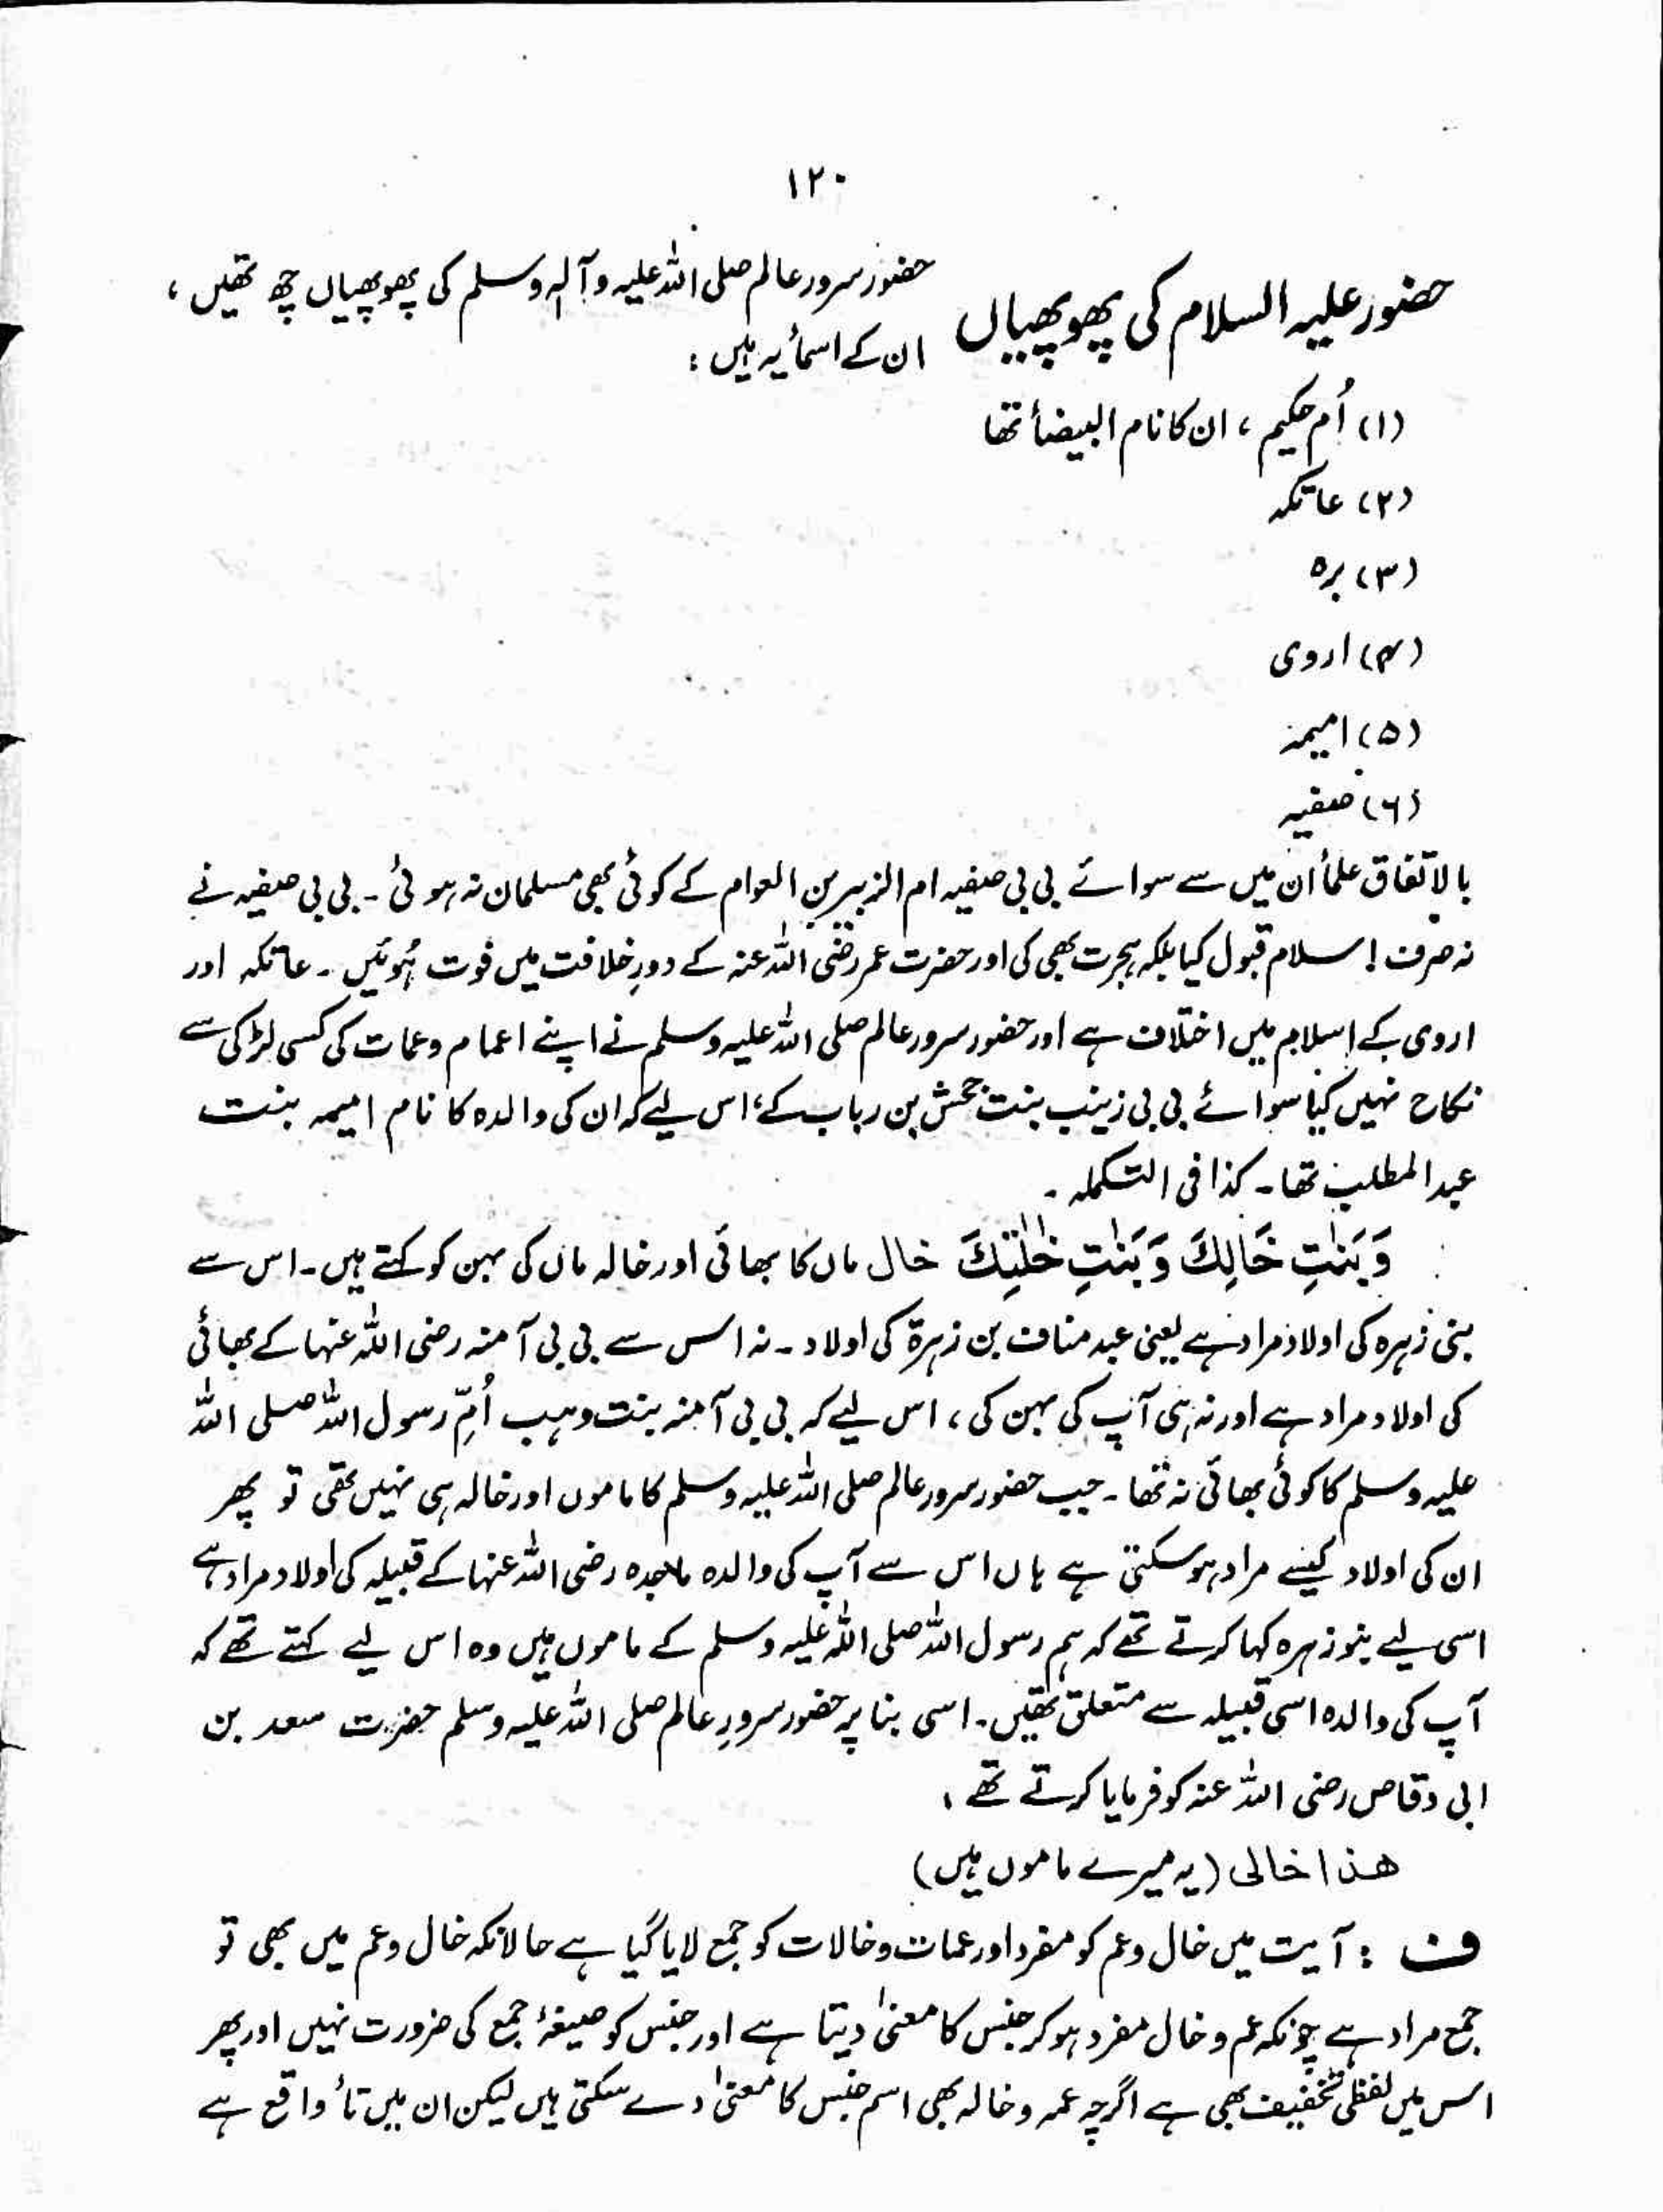 ۱۲۰
حضور علیہ السلام کی پھوپھیاں حضور سرور عالم صلی اللہ علیہ وآلہ وسلم کی پھوپھیاں چھ تھیں ،
ان کے اسمأ یہ ہیں :
(۱) اُم حکیم ، ان کا نام البیضأ تھا
(۲) عاتکہ
(۳) برہ
(۴) اروی
(۵) امیمہ
(۶) صفیہ
بالاتفاق علمأ ان میں سے سوائے بی بی صفیہ ام الزبیر بن العوام کے کوئی بھی مسلمان نہ ہوئی ۔ بی بی صفیہ نے
نہ صرف اسلام قبول کیا بلکہ ہجرت بھی کی اور حضرت عمر رضی اللہ عنہ کے دورِ خلافت میں فوت ہُوئیں ۔ عاتکہ اور
اروی کے اسلام میں اختلاف ہے اور حضور سرور عالم صلی اللہ علیہ وسلم نے اپنے اعمام و عمات کی کسی لڑکی سے
نکاح نہیں کیا سوائے بی بی زینب بنت جحش بن رباب کے ، اس لیے کہ ان کی والدہ کا نام امیمہ بنت
عبدالمطلب تھا ۔ کذا فی التکملہ ۔
وَبَنٰتِ خَالِكَ وَبَنٰتِ خٰلٰتِكَ خال ماں کا بھائی اور خالہ ماں کی بہن کو کہتے ہیں ۔ اس سے
بنی زہرہ کی اولاد مراد ہے یعنی عبد مناف بن زہرۃ کی اولاد ۔ نہ اس سے بی بی آمنہ رضی اللہ عنہا کے بھائی
کی اولاد مراد ہے اور نہ ہی آپ کی بہن کی ، اس لیے کہ بی بی آمنہ بنت وہب اُمِّ رسول اللہ صلی اللہ
علیہ وسلم کا کوئی بھائی نہ تھا ۔ جب حضور سرور عالم صلی اللہ علیہ وسلم کا ماموں اور خالہ ہی نہیں تھی تو پھر
ان کی اولاد کیسے مراد ہو سکتی ہے ہاں اس سے آپ کی والدہ ماجدہ رضی اللہ عنہا کے قبیلہ کی اولاد مراد ہے
اسی لیے بنو زہرہ کہا کرتے تھے کہ ہم رسول اللہ صلی اللہ علیہ وسلم کے ماموں ہیں وہ اس لیے کہتے تھے کہ
آپ کی والدہ اسی قبیلہ سے متعلق تھیں ۔ اسی بنا پر حضور سرورِ عالم صلی اللہ علیہ وسلم حضرت سعد بن
ابی وقاص رضی اللہ عنہ کو فرمایا کرتے تھے ،
ھذا خالی (یہ میرے ماموں ہیں)
ف : آیت میں خال و عم کو مفرد اور عمات و خالات کو جمع لایا گیا ہے حالانکہ خال و عم میں بھی تو
جمع مراد ہے چونکہ عم و خال مفرد ہو کر جنس کا معنیٰ دیتا ہے اور جنس کو صیغۂ جمع کی ضرورت نہیں اور پھر
اس میں لفظی تخفیف بھی ہے اگرچہ عمہ و خالہ بھی اسم جنس کا معنیٰ دے سکتی ہیں لیکن ان میں تأ واقع ہے